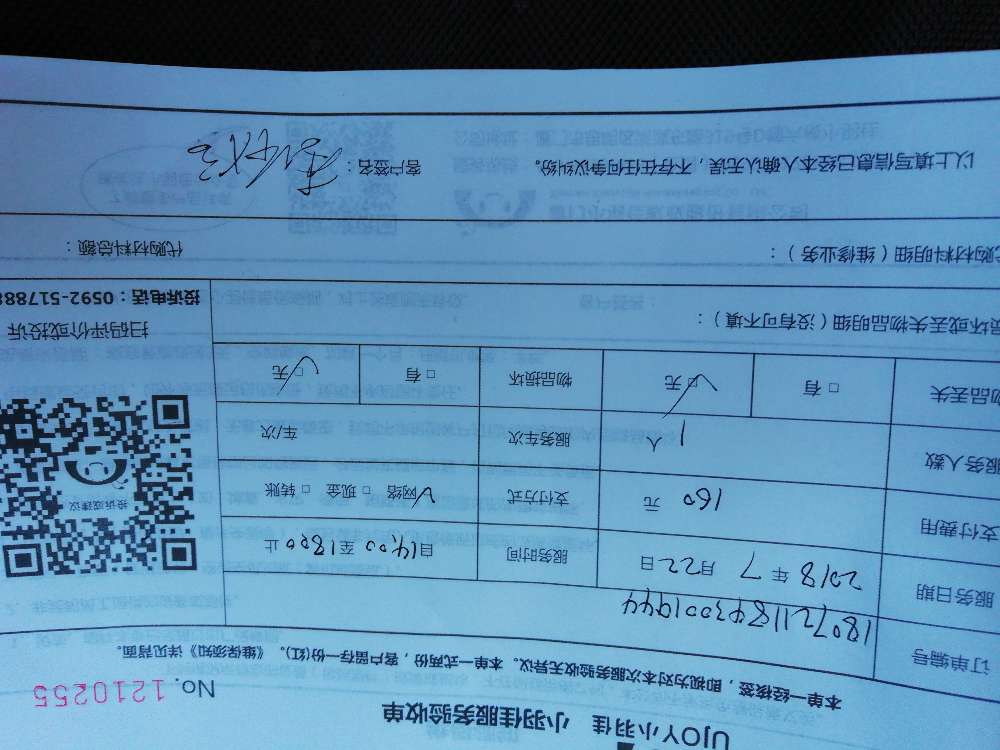 UJOY小羽佳 小羽佳服务验收单
No. 1210255
本单一经核签，即视为对本次服务验收无异议。本单一式两份，客户留存一份(红)。《维保须知》详见背面。
订单编号 1807211843001944
服务日期 2018 年 7 月 22 日 服务时间 自 1400 至 1800 止
支付费用 160 元 支付方式 ☑ 网络 □ 现金 □ 转账
服务人数 1 人 服务车次 车/次
物品丢失 □ 有 ☑ 无 物品损坏 □ 有 ☑ 无
投诉或建议
扫码评价或投诉
投诉电话：0592-51788
损坏或丢失物品明细（没有可不填）：
代购材料明细（维修业务）： 代购材料总额：
以上填写信息已经本人确认无误，不存在任何争议纠纷。 客户签名：